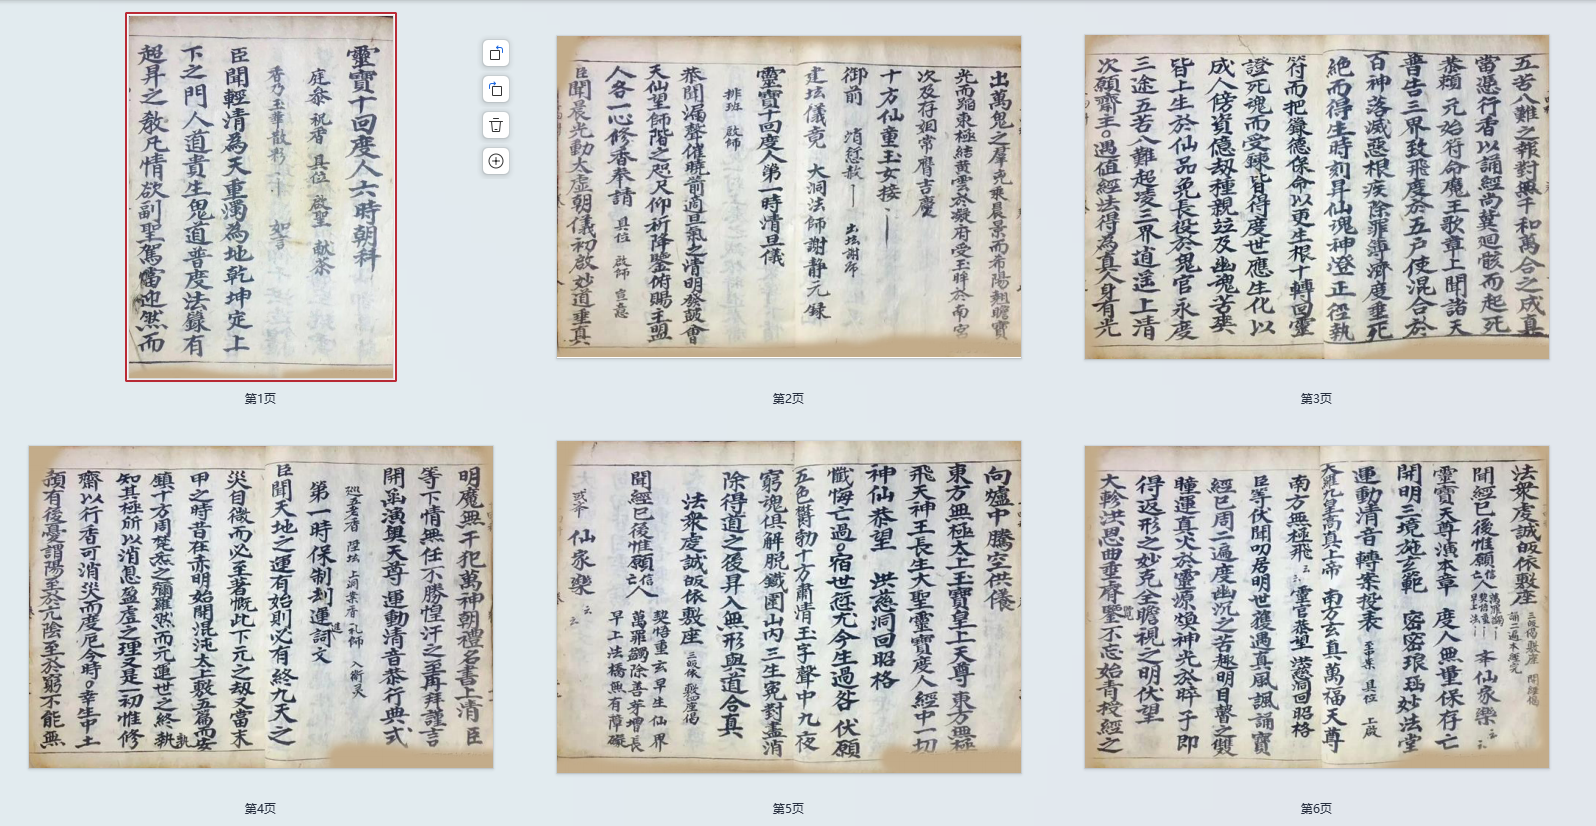 靈寶十回度人六時朝科
庭參 祝香 具位 啟聖 献茶
香乃玉華散彩 如言
臣聞輕清為天重濁為地乾坤定上
下之門人道貴生鬼道普度法籙有
超昇之教凡情欲副聖駕當迎然而
第1页
出萬鬼之羣克乘晨景而希陽翹瞻寳
光而蹈東極結黄雲於凝府受玉眸於南宮
次及存姻常膺吉慶
十方仙童玉女接
御前 消愆款 出坛謝师
建坛儀竟 大洞法師謝静元録
靈寶十回度人第一時清旦儀
排班 啟師
恭聞漏聲催曉前適旦氣之清明發鼓會
天仙望師階之咫尺仰祈降鑒俯賜主盟
人各一心修香奉請 具位 啟师 宣意
臣聞晨光動太虛朝儀初啟妙道垂真
第2页
五苦八難之報對無千和萬合之成真
當憑行香以誦經尚冀廻骸而起死
恭賴 元始符命魔王歌章上聞諸天
普告三界致飛度於五戶使混合於
百神落滅惡根疾除罪簿濟度垂死
絶而得生時刻昇仙魂神澄正徑執
符而把籙德保命以更生根十轉回靈
證死魂而受鍊皆得度世應生化以
成人傍資億劫種親竝及幽魂苦爽
皆上生於仙品免長役於鬼官永度
三途五苦八難超凌三界逍遥上清
次願齋主遇值經法得為真人身有光
第3页
明魔無干犯萬神朝禮名書上清 臣
等下情無任不勝惶汗之至再拜謹言
開函演與天尊 運動清音恭行典式
巡五老香 陞坛 上洞案香 礼师 入術灵
第一時保制刦運詞文
臣聞天地之運有始則必有終九天之
災自微而必至著慨此下元之刼又當末
甲之時昔在赤明始開混沌太上敷五篇而安
鎮十方周梵炁之彌羅然而元運世之終孰
知其極所以消息盈虛之理又是一初惟修
齋以行香可消災而度厄今時幸生中土
頗有後憂謂陽至於九隂至於窮不能無
第4页
向爐中騰空供儀
東方無極太上玉寶皇上天尊 東方無極
飛天神王長生大聖靈寶度人經中一切
神仙恭望 洪慈洞回昭格
懺悔亡過宿世愆尤今生過咎 伏願
五色鬱勃十方肅清玉字聲中九夜
窮魂俱解脱鐵圍山内三生寃對盡消
除得道之後昇入無形與道合真
法衆虔誠皈依敷座 三皈依 敷座偈
聞經已後惟願信人亡人 契悟重玄早生仙界
萬罪蠲除善芽增長
早上法橋無有障礙
或奉 仙家樂 云云
第5页
法衆虔誠皈依敷座 三皈偈敷座 開經偈
聞經已後惟願信人亡人 萬罪蠲 契悟重 早上法 奉仙家樂 云云
靈寶天尊演本章 度人無量保存亡
開明三境施玄範 密密琅瑀妙法堂
運動清音 轉案投表 至案 具位 上啟
大羅九皇高真上帝 南方玄真萬福天尊
南方無極飛 靈官恭望 慈洞回昭格
臣等伏聞叨居明世獲遇真風諷誦寳
經已周二遍度幽沉之苦趣明目瞽之雙
瞳運真火於靈源煥神光於晬子即
得返形之妙克全瞻視之明伏望
大軫洪恩曲垂膺鑒不忘始青授經之
第6页